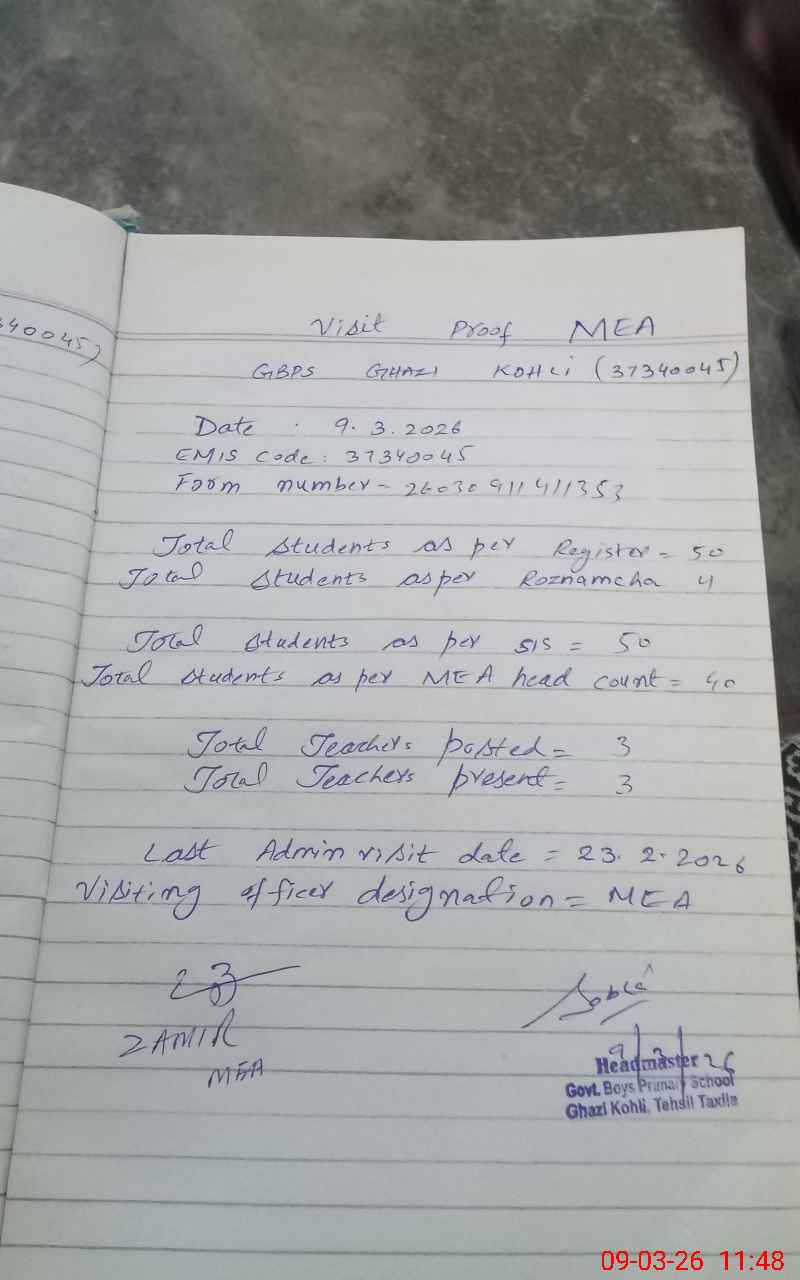 40045)
Visit Proof MEA
GBPS GHAZI KOHLI (37340045)
Date . 9.3.2026
EMIS Code: 37340045
Form number - 26030911411353
Total Students as per Register = 50
Total Students as per Roznamcha 4
Total Students as per SIS = 50
Total Students as per MEA head count = 40
Total Teachers posted = 3
Total Teachers present = 3
Last Admin visit date = 23.2.2026
Visiting officer designation = MEA
ZAMIR
MEA
9/3/26
Headmaster
Govt. Boys Primary School
Ghazi Kohli, Tehsil Taxila
09-03-26 11:48